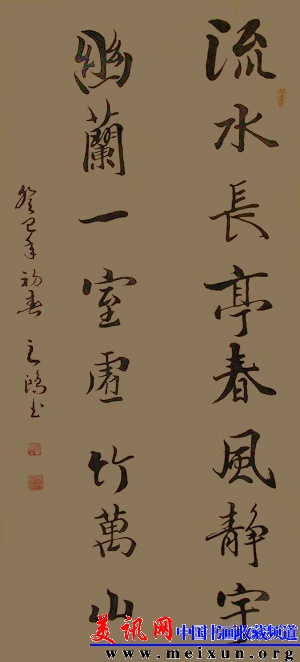 流水長亭春風靜宇
幽蘭一室虛竹萬山
癸巳年初春之鴻書
美讯网 中国书画收藏频道
www.meixun.org